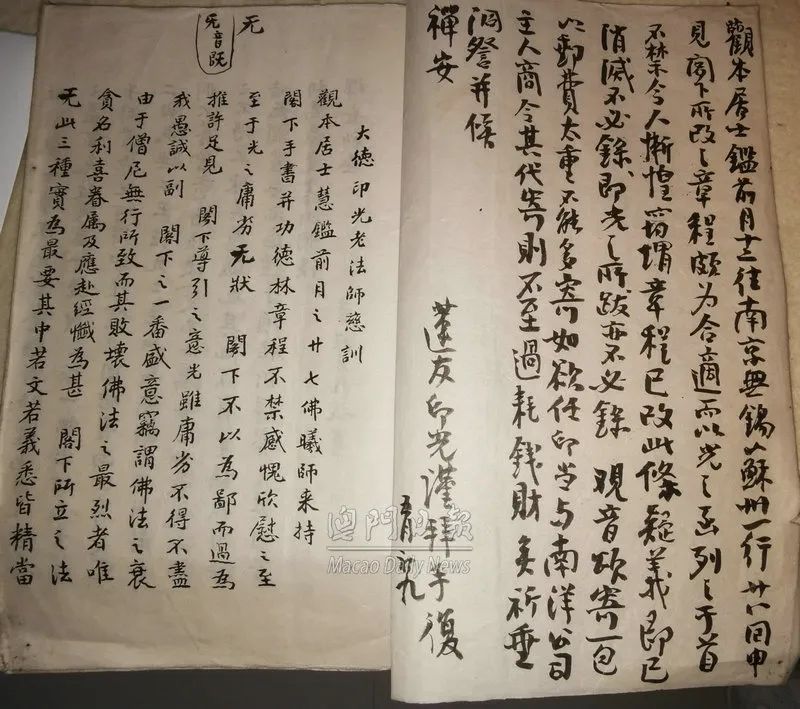 觀本居士鑑前月十三往南京無錫蘇州一行廿八回申
見閣下所改之章程頗为合適而以光之函列之于首
不禁令人慚惶竊謂章程已改此條疑義即已
消滅不必錄即光之所跋亦不必錄 观音頌寄一包
以郵費太重不能多寄如欲任印當与南洋公司
主人商令其代寄則不至過耗錢財矣祈垂
洞詧并候
禪安
蓮友印光謹拜手復
五月初九
无
无音既
大德印光老法師慈訓
觀本居士慧鑑前月之廿七佛曦師来持
閣下手書并功德林章程不禁感愧欣慰之至
至于光之庸劣无狀 閣下不以為鄙而過為
推許足見 閣下導引之意光雖庸劣不得不盡
我愚誠以副 閣下之一番盛意竊謂佛法之衰
由于僧尼無行所致而其敗壞佛法之最烈者唯
貪名利喜眷属及應赴經懺為甚 閣下所立之法
无此三種實為最要其中若文若義悉皆精當
澳門日報
Macao Daily News